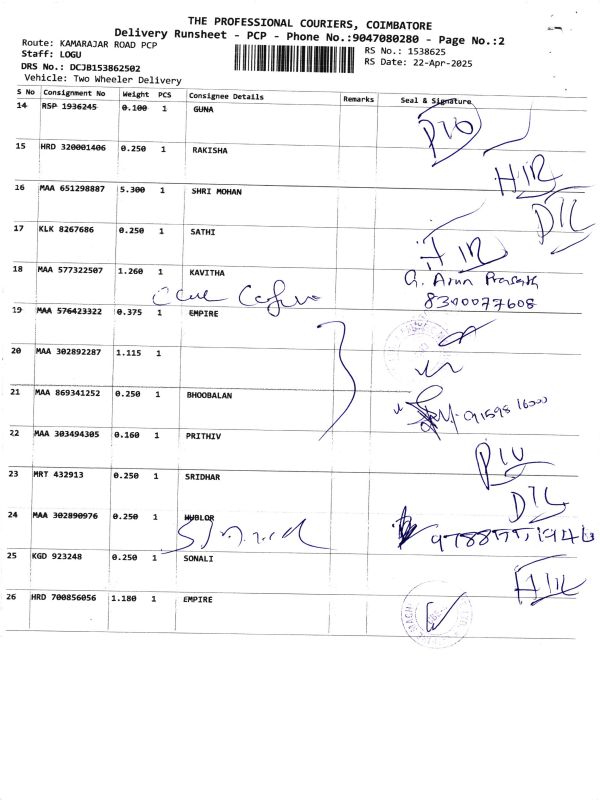 THE PROFESSIONAL COURIERS, COIMBATORE
Delivery Runsheet - PCP - Phone No.:9047080280 - Page No.:2
Route: KAMARAJAR ROAD PCP
Staff: LOGU
DRS No.: DCJB153862502
Vehicle: Two Wheeler Delivery
RS No.: 1538625
RS Date: 22-Apr-2025
S No Consignment No Weight PCS Consignee Details Remarks Seal & Signature
14 RSP 1936245 0.100 1 GUNA
15 HRD 320001406 0.250 1 RAKISHA
16 MAA 651298887 5.300 1 SHRI MOHAN
17 KLK 8267686 0.250 1 SATHI
18 MAA 577322507 1.260 1 KAVITHA G. Arun Prasath
8300077608
19 MAA 576423322 0.375 1 EMPIRE
20 MAA 302892287 1.115 1
21 MAA 869341252 0.250 1 BHOOBALAN
22 MAA 303494305 0.160 1 PRITHIV
23 MRT 432913 0.250 1 SRIDHAR
24 MAA 302890976 0.250 1
25 KGD 923248 0.250 1 SONALI
26 HRD 700856056 1.180 1 EMPIRE